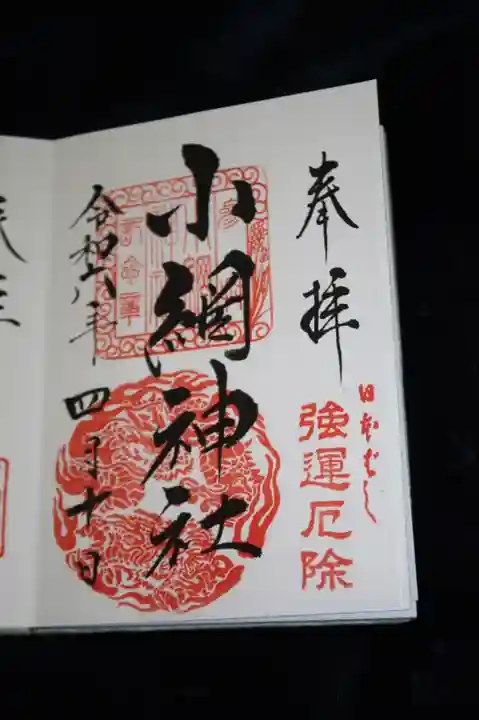 奉拝
日本ばし
強運厄除
小網神社
令和八年四月十日